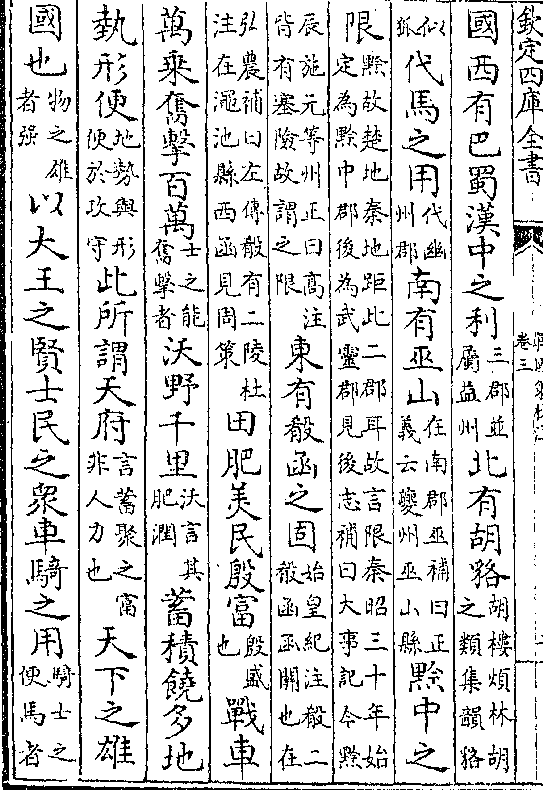 欽定四庫全書
卷三
國西有巴蜀漢中之利三郡並屬益州北有胡貉胡樓煩林胡之類集韻貉
似狐代馬之用代幽州郡南有巫山在南郡巫補曰正義云夔州巫山縣黔中之
限黔故楚地秦地距此二郡耳故言限秦昭三十年始定為黔中郡後為武靈郡見後志補曰大事記今黔
辰施元等州正曰高注皆有塞險故謂之限東有殽函之固始皇紀注殽二殽函函關也在
弘農補曰左傳殽有二陵杜注在澠池縣西函見周策田肥美民殷富殷盛也戰車
萬乘奮擊百萬士之能奮擊者沃野千里沃言其肥潤蓄積饒多地
執形便地勢與形便於攻守此所謂天府言蓄聚之富非人力也天下之雄
國也物之雄者强以大王之賢士民之衆車騎之用騎士之便馬者